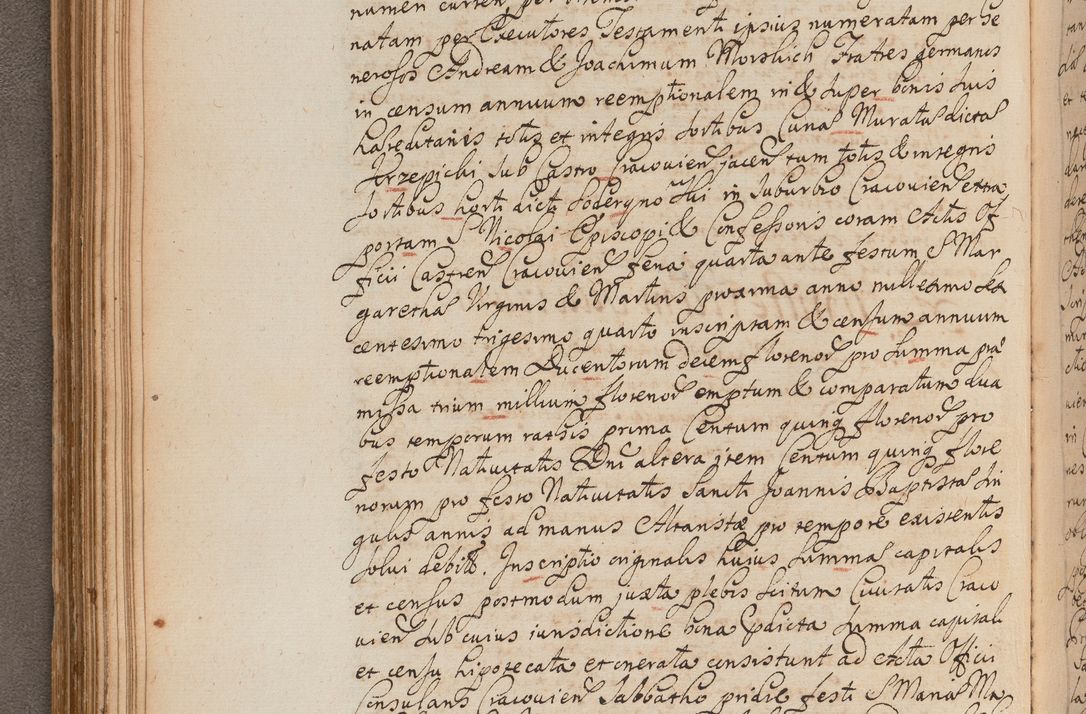 natam per Executores Testamenti ipsius numeratam per Ge
nerosos Andream & Joachimum Morskich Fratres germanos
in censum annuum reemptionalem in & super bonis suis
hæreditariis totis et integris sortibus Curia Murata dicta
Krzepicki sub Castro Cracovien jacen tum totis & integris
sortibus horti dicti in suburbio Cracovien extra
portam S Nicolai Episcopi & Confessoris coram Actis Of
ficii Castren Cracovien feria quarta ante festum S Mar
garethæ Virginis & Martiris proxima anno millesimo sex
centesimo trigesimo quarto inscriptam & censum annuum
reemptionalem Ducentorum decem florenor pro summa præ
missa trium millium florenor emptum & comparatum dua
bus temporum ratis prima Centum quinq florenor pro
festo Nativitatis Dni altera item Centum quinq flore
norum pro festo Nativitatis Sancti Joannis Baptistæ sin
gulis annis ad manus Altaristæ pro tempore existentis
solui debito. Inscriptio originalis huius summæ capitalis
et census postmodum iuxta plebis scitum Civitatis Craco
vien sub cuius iurisdictione bona pdicta summa capitali
et censu hipotecata et onerata consistunt ad Acta Officii
Consularis Cracovien Sabbatho pridie festi S Mariæ Ma